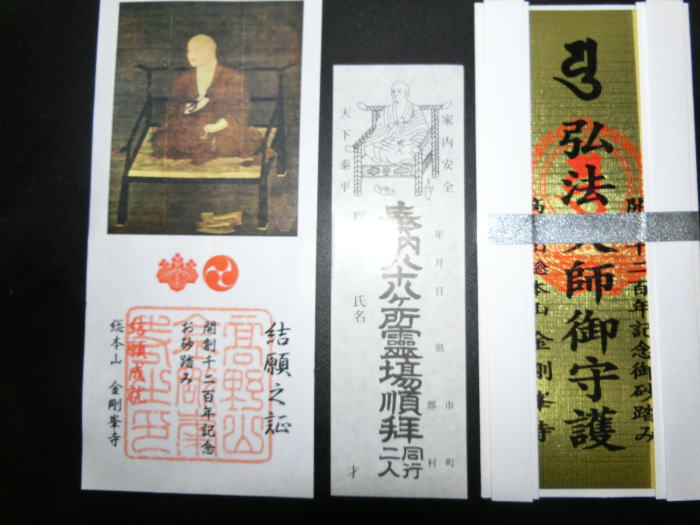 結願之証
開創千二百年記念
お砂踏み
総本山 金剛峯寺
結願成就
高野山
家内安全
天下泰平
奉納八十八ヶ所靈場順拝
同行
二人
年月日
県
市
郡
町
村
氏名
才
弘法大師御守護
開創千二百年記念御砂踏み
高野山総本山 金剛峯寺